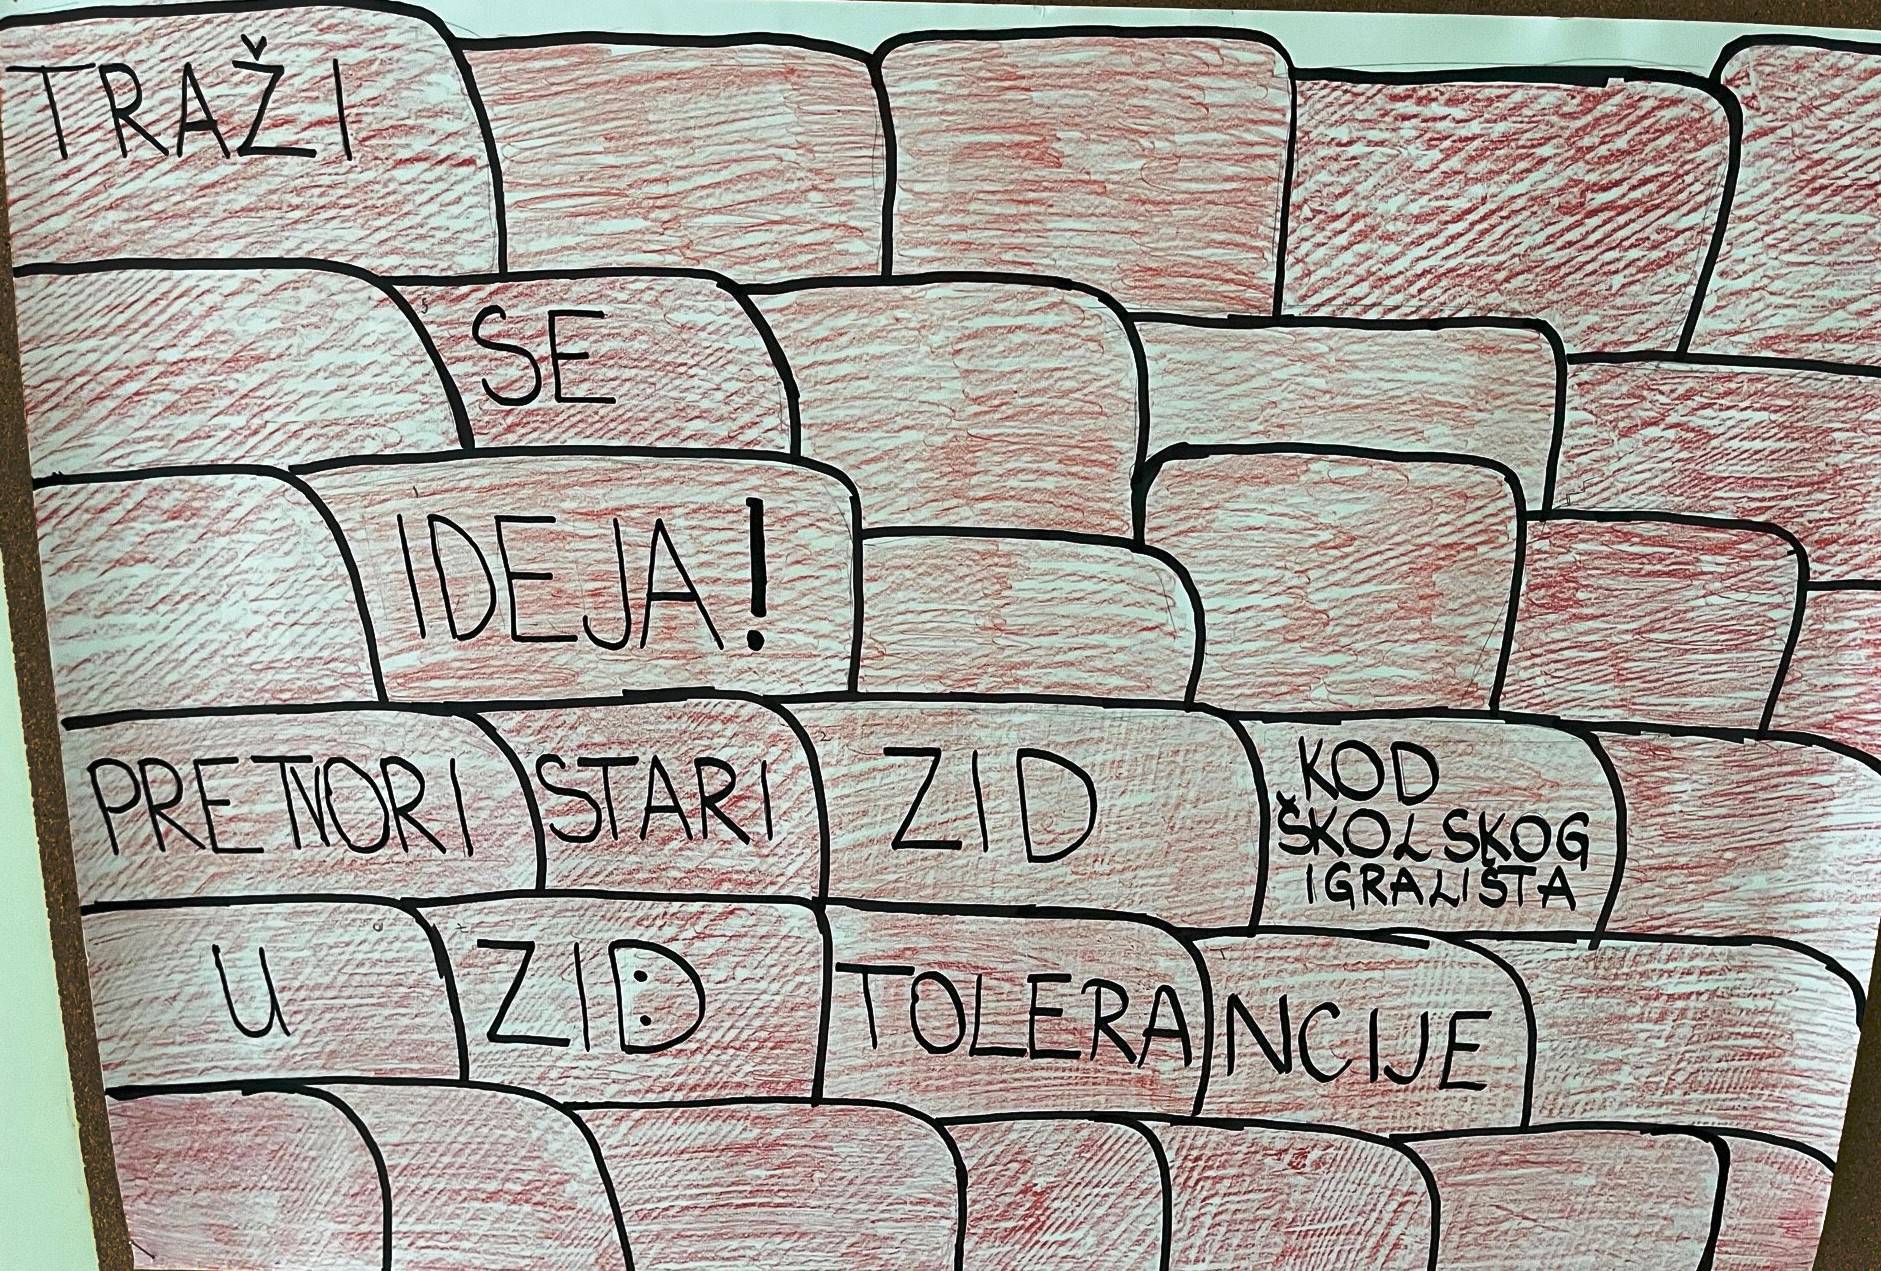 TRAŽI
SE
IDEJA!
PRETVORI STARI ZID KOD
ŠKOLSKOG
IGRALIŠTA
U ZID TOLERANCIJE